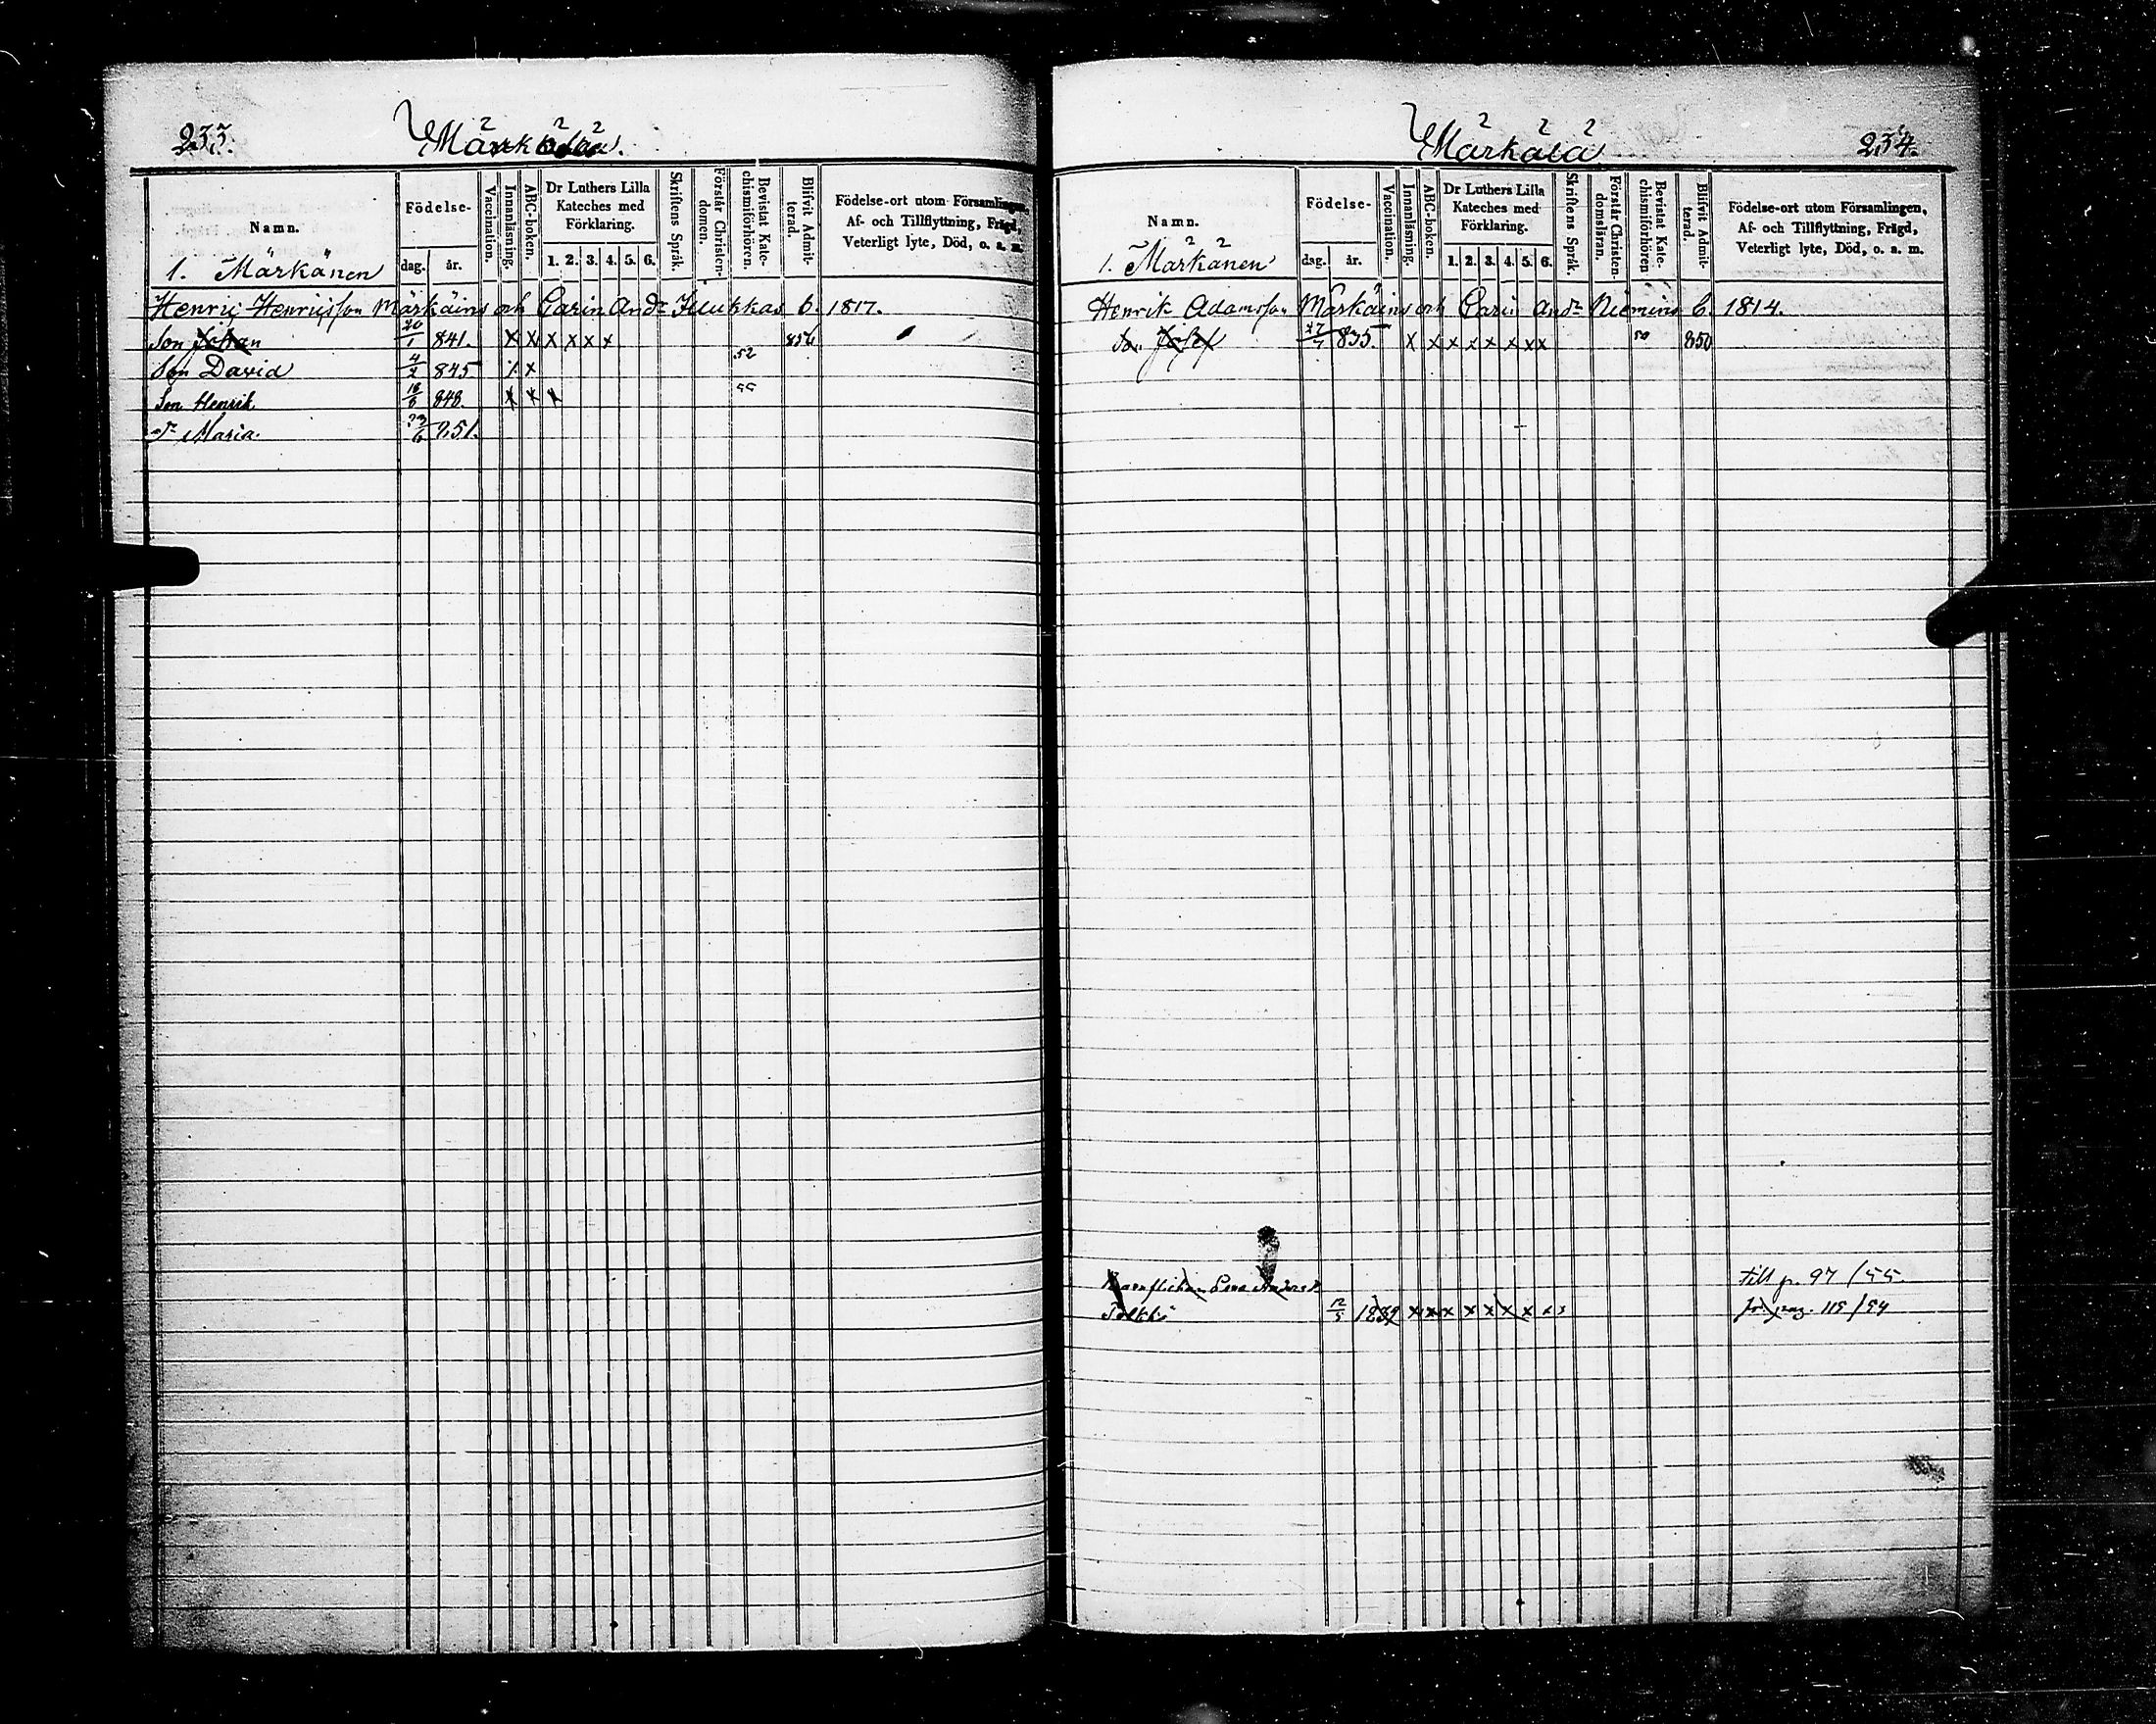 233.
Märkälä.
Namn.
Födelse-
dag.
år.
Vaccination.
Innanläsning.
ABC-boken.
Dr Luthers Lilla
Kateches med
Förklaring.
1. 2. 3. 4. 5. 6.
Skriftens Språk.
Förstår Christen-
domen.
Bevistat Kate-
chismiförhören.
Blifvit Admit-
terad.
Födelse-ort utom Församlingen,
Af- och Tillflyttning, Frägd,
Veterligt lyte, Död, o. s. m.
1. Märkänen
Henric Henricsson Märkäins och Carin And:r C. 1817.
Son Johan 20/1 841. x x x x x x 856
Son David 4/2 845 x 52
Son Henrik 18/8 848. x x x 55
D:r Maria. 6 851.
Märkälä
234.
Namn.
Födelse-
dag.
år.
Vaccination.
Innanläsning.
ABC-boken.
Dr Luthers Lilla
Kateches med
Förklaring.
1. 2. 3. 4. 5. 6.
Skriftens Språk.
Förstår Christen-
domsläran.
Bevistat Kate-
chismiförhören
Blifvit Admit-
terad.
Födelse-ort utom Församlingen,
Af- och Tillflyttning, Frägd,
Veterligt lyte, Död, o. s. m.
1. Märkänen
Henrik Adamsson Märkäins och Carin And:r Niemins C. 1814.
Son Josef 27/7 835. x x x x x x x x 50 850
Lena Anders D:r till p. 97/55.
Tolkki 12/5 x x x x x x x x x pag. 115/54